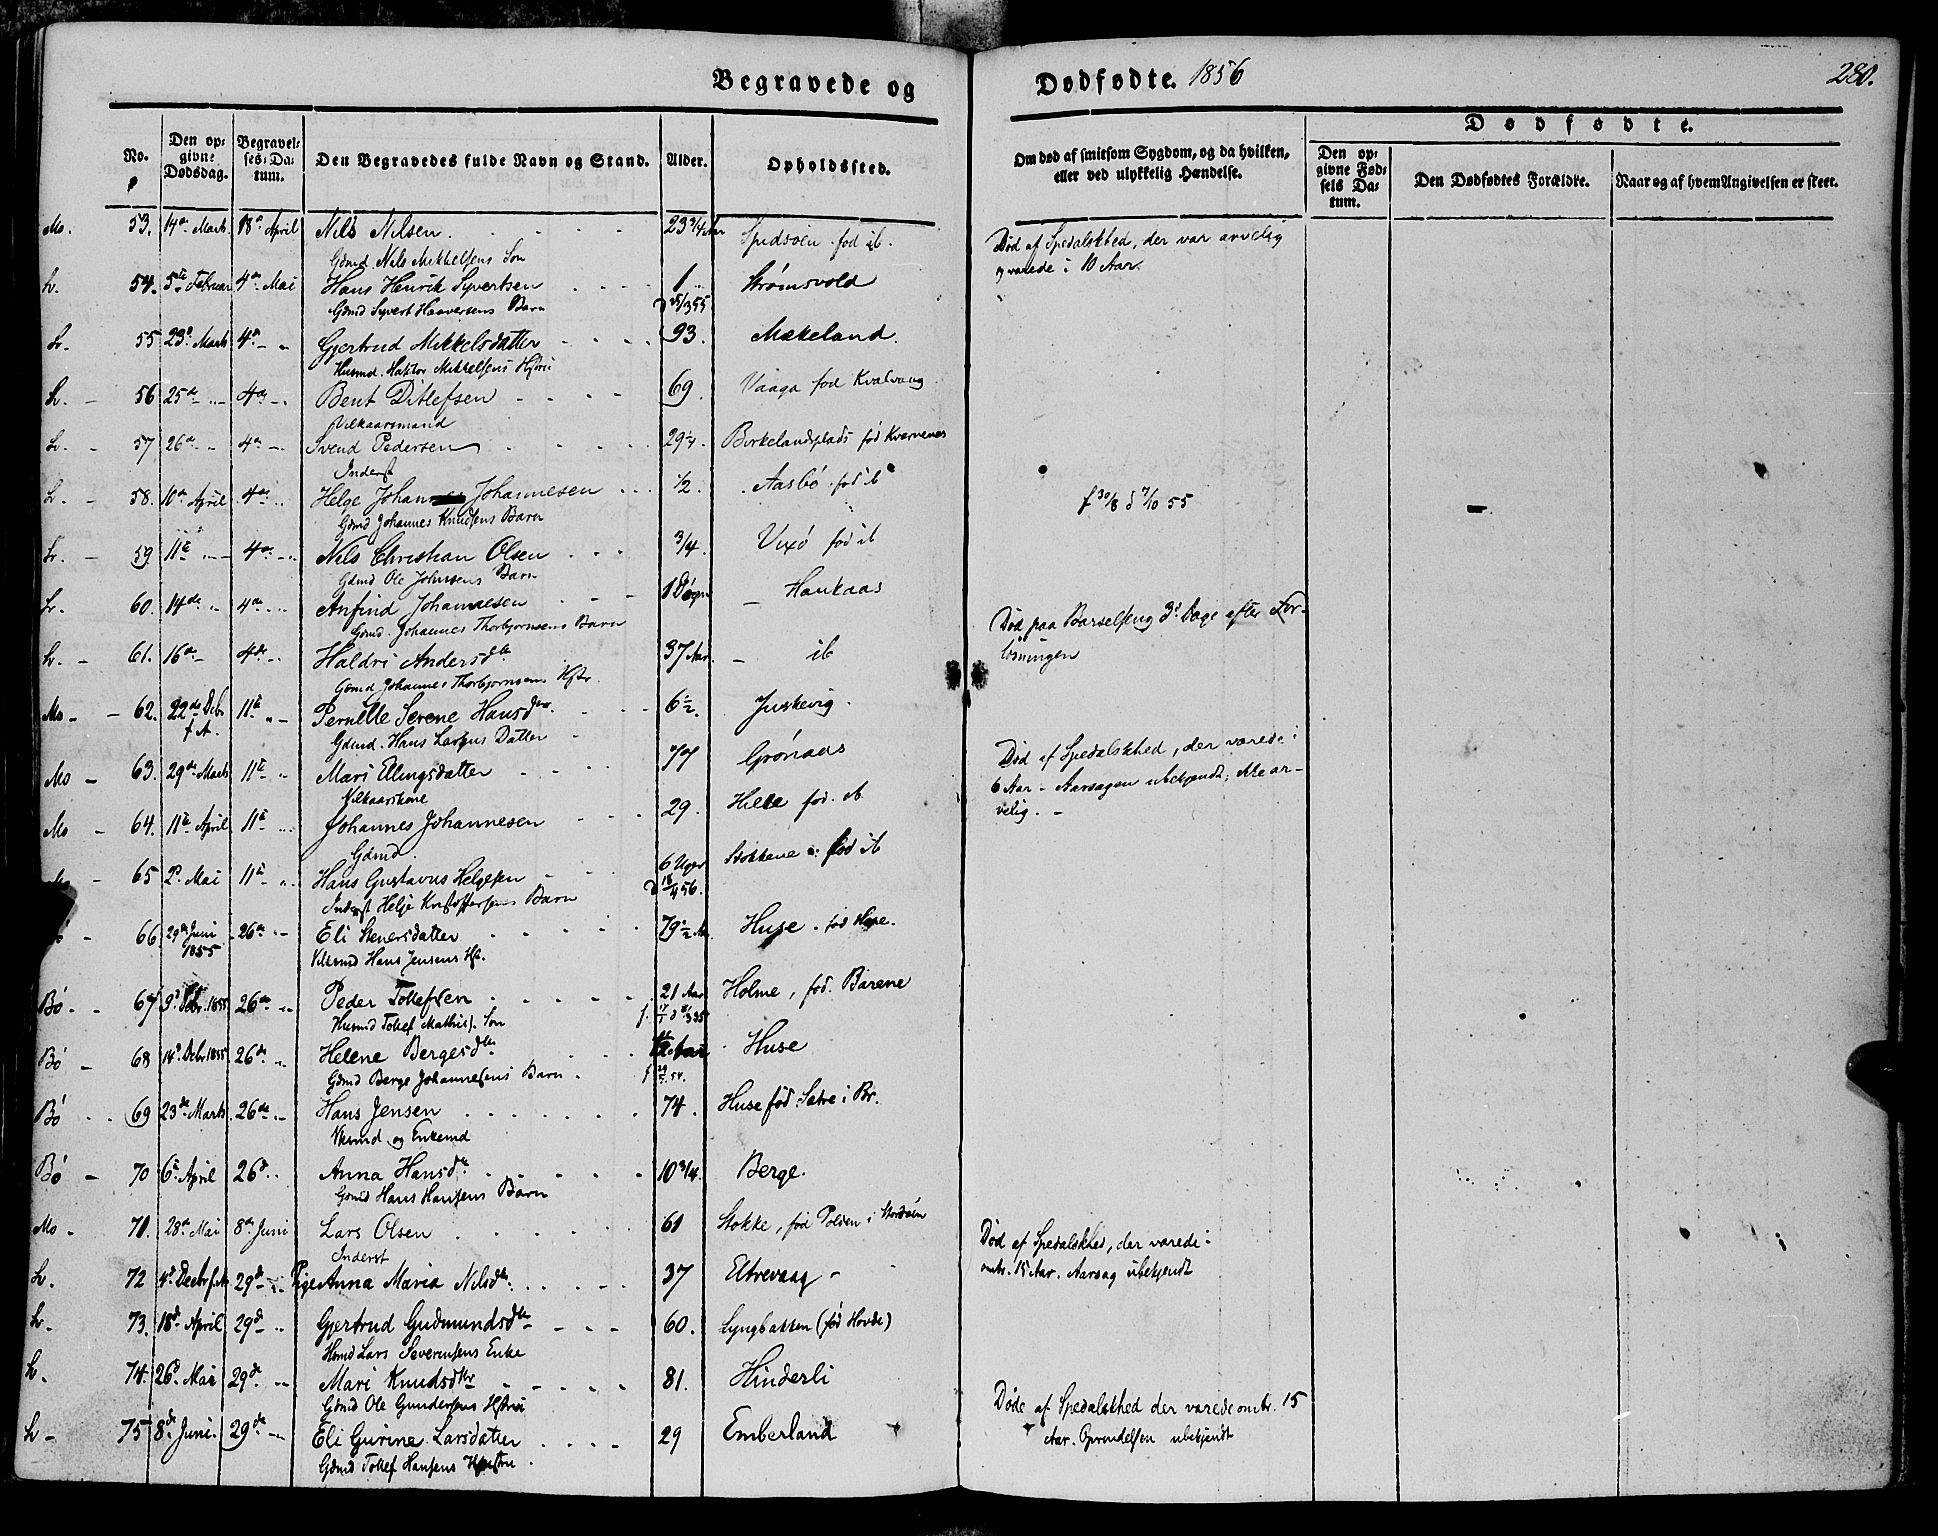 Begravede og Dødfødte. 1856 280.
No. Den opgivne Dødsdag. Begravelses-Datum. Den Begravedes fulde Navn og Stand. Alder. Opholdssted. Om død af smitsom Sygdom, og da hvilken, eller ved ulykkelig Hændelse. Dødfødte.
Den opgivne Fødsels Datum. Den Dødfødtes Forældre. Naar og af hvem Angivelsen er skeet.
Mo. 53. 14de Marts 18de April Nils Nilsen 23 3/4 Aar fød ib. Død af Spedalskhed, der var arvelig
Gdmd Nils Mikkelsens Søn og varede i 10 Aar.
Lr. 54. 5te Februar 4de Mai Hans Henrik Syvertsen 1 Strømsvold
Gdmd Syvert Haaversens Barn
Lr. 55 23de Marts 4de - " Gjertrud Mikkelsdatter 93. Mækeland.
Husmd. Mikkelsens Hstru
Lr. - 56 25de " 4de - " Bent Ditlefsen 69. Vaaga fød Kvalvaag
Vilkaarsmand
Lr. - 57 26de " 4de - Svend Pedersen 29 1/4. Birkelandsplads fød Kvernenes
Inderst
Lr. - 58. 10de April 4de " Helge Johannesen 1/2. Aasbø fød ib f 30/8 d 7/10 55
Gdmd Johannes Knudsens Barn
Lr. - 59 11te - 4de - " Nils Christian Olsen 3/4. Vixø fød ib
Gdmd Ole Johnsens Barn
Lr. 60. 14de " 4de " Anfind Johannesen 1 Døgn Haukaas
Gdmd. Johannes Thorbjørnsens Barn
Lr. - 61. 16de - 4de " Haldri Andersdtr 37 Aar - ib Død paa Barselseng 3de Dage efter For-
Gdmd Johannes Thorbjørnsens Hstr. løsningen
Mo - - 62. 22de Decbr f.A. 11te " - Pernille Serene Hansdtr. 6 1/2. Juskevig.
Gdmd. Hans Larsens Datter
Mo - 63. 29de Marts 11te " Mari Ellingsdatter 77 Grønaas
Vilkaarskone
Mo - 64. 11te April 11te Johannes Johannesen 29. Hille fød. ib Død af Spedalskhed, der varede i
Gdmd. 6 Aar - Aarsagen ubekjendt; ikke ar-
velig. -
Mo - 65 2de Mai 11te - " Hans Gustavus Helgesen 6 Uger d 18/4 56. Stokkene fød ib
Inderst Helje Kristoffersens Barn
Bø - 66 29de Juni 1855 26de " Eli Stenersdatter 79 1/2 Aar Huse. fød Huse.
Vilkmd Hans Jensens Hst.
Bø - 67 9de 1855 26de " Peder Tollefsen 21 Aar Holme, fød. Barene
Husmd Tollef Søn
Bø - 68 14de Decbr. 1855 26de " Helene Bergesdtr Huse
Gdmd Berge Johannesens Barn.
Bø - 69 23de Marts 26de - Hans Jensen 74. Huse fød. Sætre i Br.
og Enkemd
Bø - 70 6te April 26de " Anna Hansdtr 10 3/4. Berge.
Gdmd Hans Hansens Barn
Mo - 71. 28de Mai 8de Juni Lars Olsen 61 Stokke, fød i Død af Spedalskhed, der varede i
Inderst omtr. 15 Aar. Aarsag ubekjendt
Lr. 72 4de Decbr f.A. 29de - Pige Anna Maria Nilsdtr. 37 Eltrevaag
Lr. - 73. 18de April 29de " Gjertrud Gudmundsdtr - 60. Lyngbakken (fød Hovde)
Hsmd Lars Severinsens Enke
Lr. 74. 26de Mai 29de " Mari Knudsdtr 81. Hinderli
Gdmd Ole Gundersens Hstru
Lr - 75 8de Juni. 29de - " Eli Gurine Larsdatter 29 Emberland Døde af Spedalskhed der varede omtr. 15
Gdmd Tollef Hansens Hstru. Aar. Oprindelsen ubekjendt